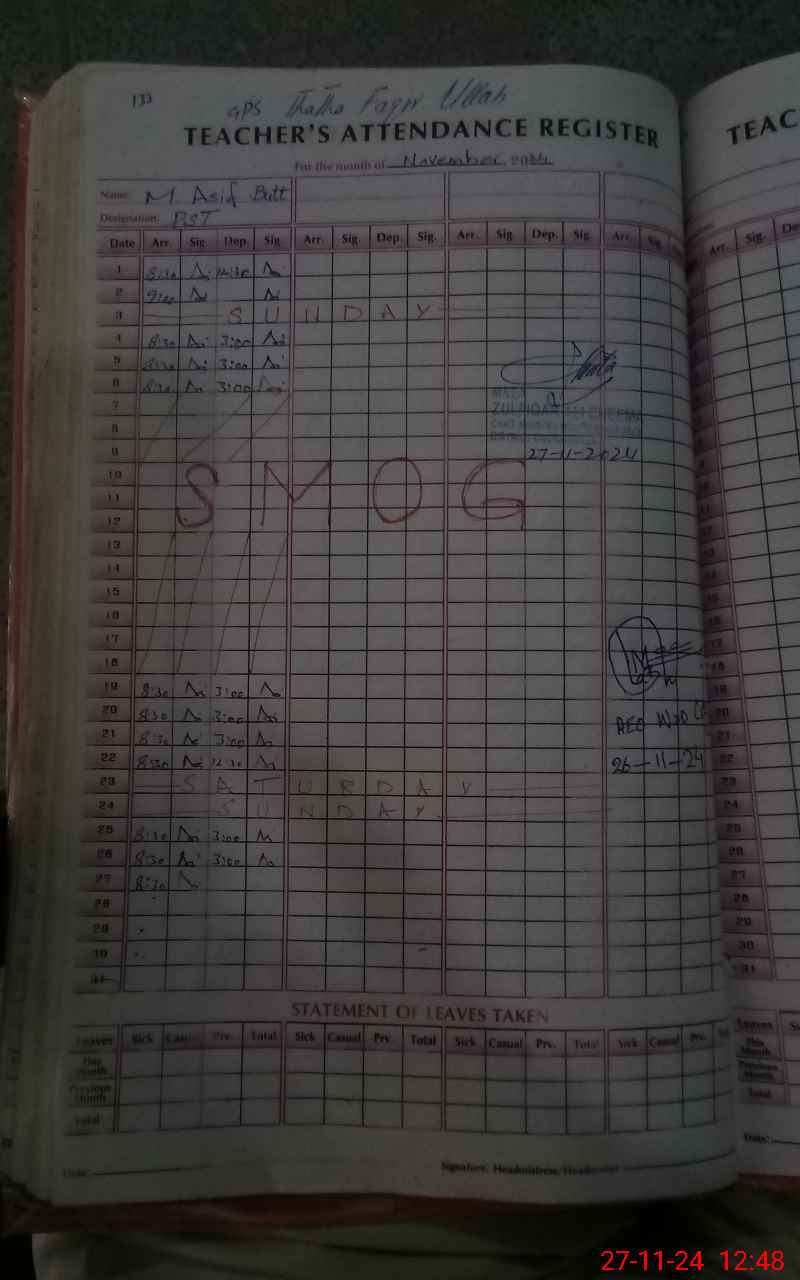 133
GPS Thatha Faqir Ullah
TEACHER'S ATTENDANCE REGISTER
TEAC
For the month of November 2024
Name: M Asif Butt
Designation. PST
Date Arr. Sig. Dep. Sig Arr. Sig. Dep. Sig. Arr. Sig. Dep. Sig. Arr. Sig. Arr. Sig. De
1 8:30 12:30
2 9:00
3 SUNDAY
4 8:30 3:00
5 8:30 3:00
6 8:30 3:00
7
8
9 27-11-2024
10
11 SMOG
12
13
14
15
16
17
18
19 8:30 3:00
20 8:30 3:00
21 8:30 3:00
22 8:30 12:30 26-11-24
23 SATURDAY
24 SUNDAY
25 8:30 3:00
26 8:30 3:00
27 8:30
28
29
30
31
STATEMENT OF LEAVES TAKEN
Leaves Sick Casual Prv. Total Sick Casual Prv. Total Sick Casual Prv. Total Sick Casual Prv. Leaves
This Month
Previous Month
Total
Date: Signature. Headmistress/Headmaster Date:
27-11-24 12:48